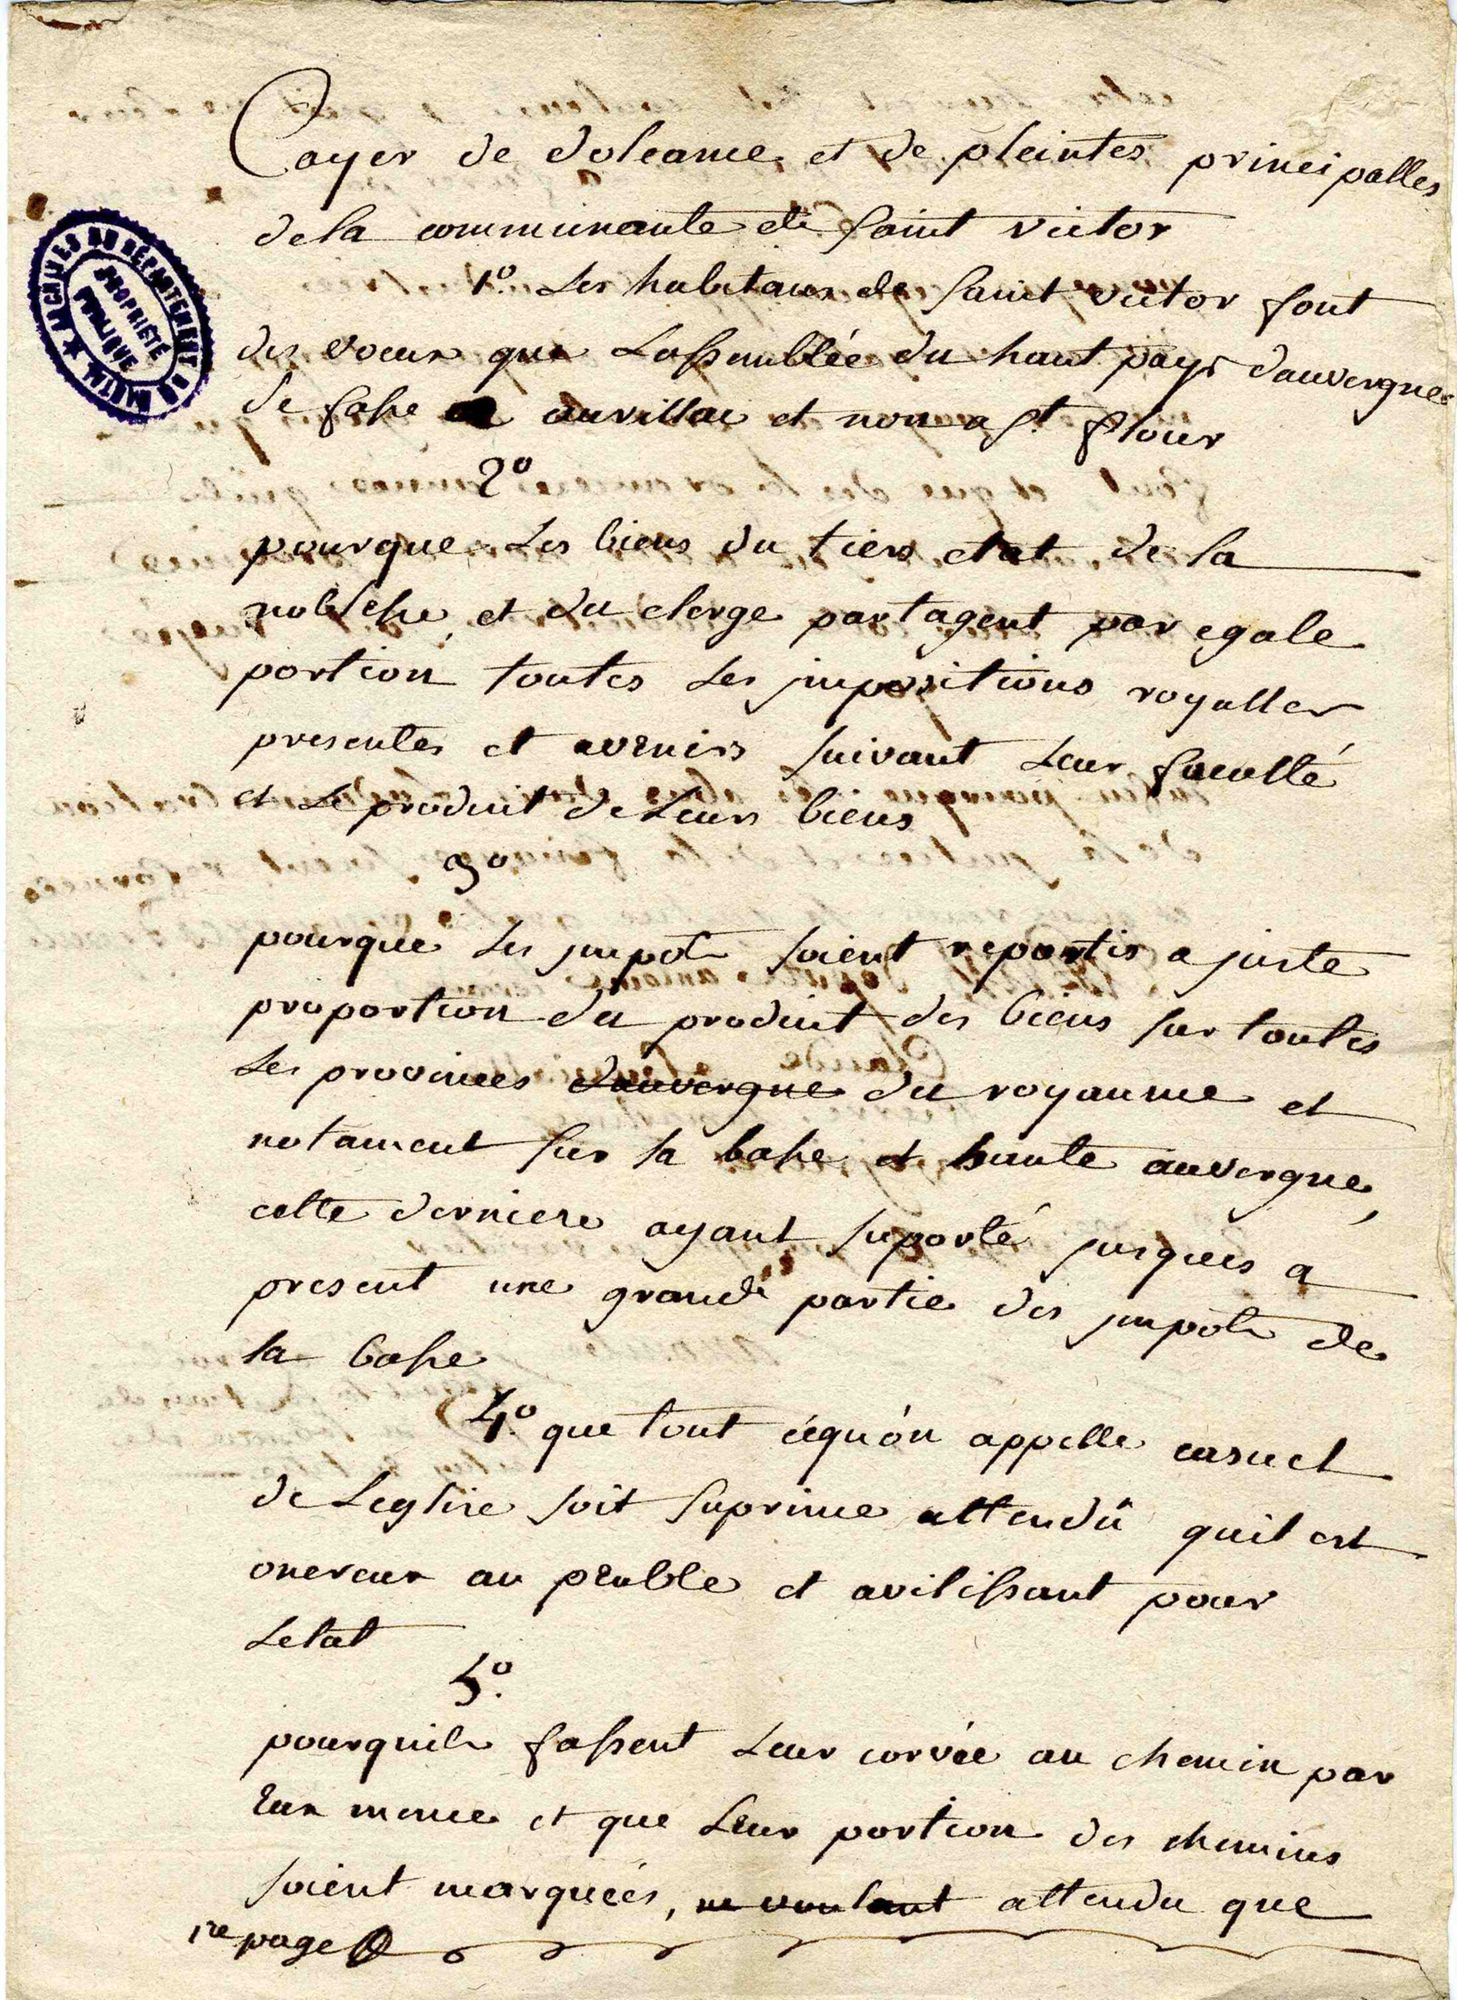 Cayer de doleance et de pleintes principalles
de la communaute de saint victor
1º. Les habitans de saint victor font
des voeux que Lassemblée du haut pays dauvergne
se fasse a aurillac et non a st. flour
2º
pourque Les biens du tiers etat de la
noblesse et du clerge partagent par egale
portion toutes Les impositions royalles
presentes et avenirs suivant Leur faculté
et Le produit de Leurs biens
3º
pourque Les impots soient repartis a juste
proportion du produit des biens sur toutes
Les provinces dauvergne du royaume et
notament sur la basse et haute auvergne,
cette derniere ayant suporté jusques a
present une grande partie des impots de
la basse
4º. que tout cequ'on appelle casuel
de Leglise soit suprime attendû quil est
onereux au peuble et avilissant pour
Letat
5º.
pourquils fassent Leur corvée au chemin par
eux meme et que Leur portion des chemins
soient marquées, ne voulant attendu que
1re page
ARCHIVES DU DÉPARTEMENT DU CANTAL
PROPRIÉTÉ
PUBLIQUE